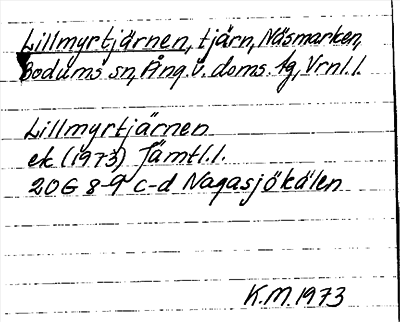 Lillmyrtjärnen, tjärn, Näsmarken,
Bodums sn, Ång. v. doms. lg, Vrnl.l.
Lillmyrtjärnen
ek (1973) Jämtl.l.
20G 8-9 c-d Nagasjökälen
K.M. 1973